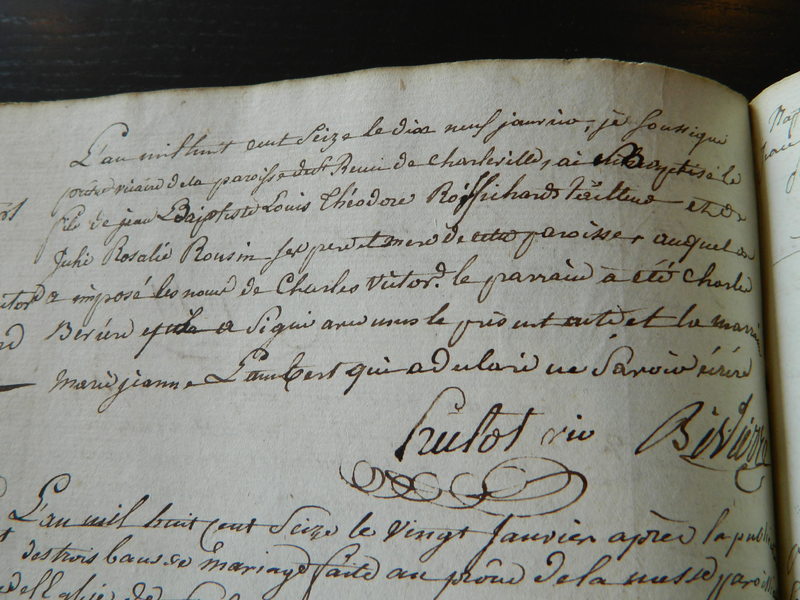 L'an mil huit cent Seize le dix neuf janvier, je soussigné
prêtre vicaire de la paroisse de St Remi de Charleville, ai Baptisé le
fils de jean Baptiste Louis Théodore Richard tailleur et de
Julie Rosalie Rousin ses pere et mere de cette paroisse, auquel on
a imposé les noms de Charles Victor. le parrain a été Charles
et a Signé avec nous le présent acte et la marraine
Marie jeanne Lambert qui a declaré ne Savoir écrire
Hulot vic
L'an mil huit cent Seize le Vingt Janvier après la publi
des trois bans de mariage faite au prône de la messe parois